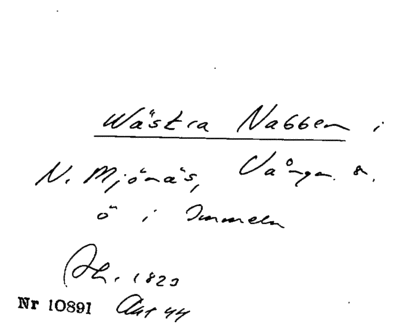 Wästra Nabben i
N. Mjönäs, Vånga s.
ö i Immeln
1823
Nr 10891 Akt 44